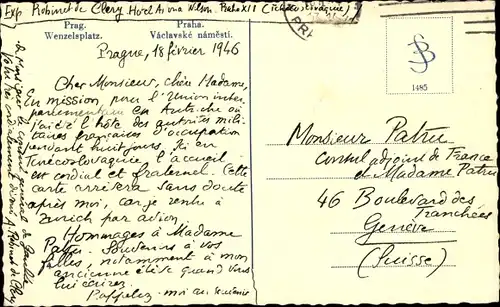 Exp Robinet de Clery Hotel Arona Wilson. Praha XII (Tchécoslovaquie)
Prag. Praha.
Wenzelsplatz. Václavské náměstí.
Prague, 18 février 1946
Cher Monsieur, chère Madame,
En mission pour l'Union inter-
parlementaire en Autriche où
j'ai été l'hôte des autorités mili-
taires françaises d'occupation
pendant huit jours. Ici en
Tchécoslovaquie, l'accueil
est cordial et fraternel. Cette
carte arrivera sans doute
après moi, car je rentre à
Zurich par avion.
Hommages à Madame
Patru. Souvenirs à vos
filles, notamment à mon
ancienne élève quand vous
lui écrirez.
Rappelez-moi au souvenir
de Monsieur le consul général de
Votre très cordialement dévoué A. Robinet de Cléry
1485
Monsieur Patru
Consul adjoint de France
et Madame Patru
46 Boulevard des
Tranchées
Genève
(Suisse)